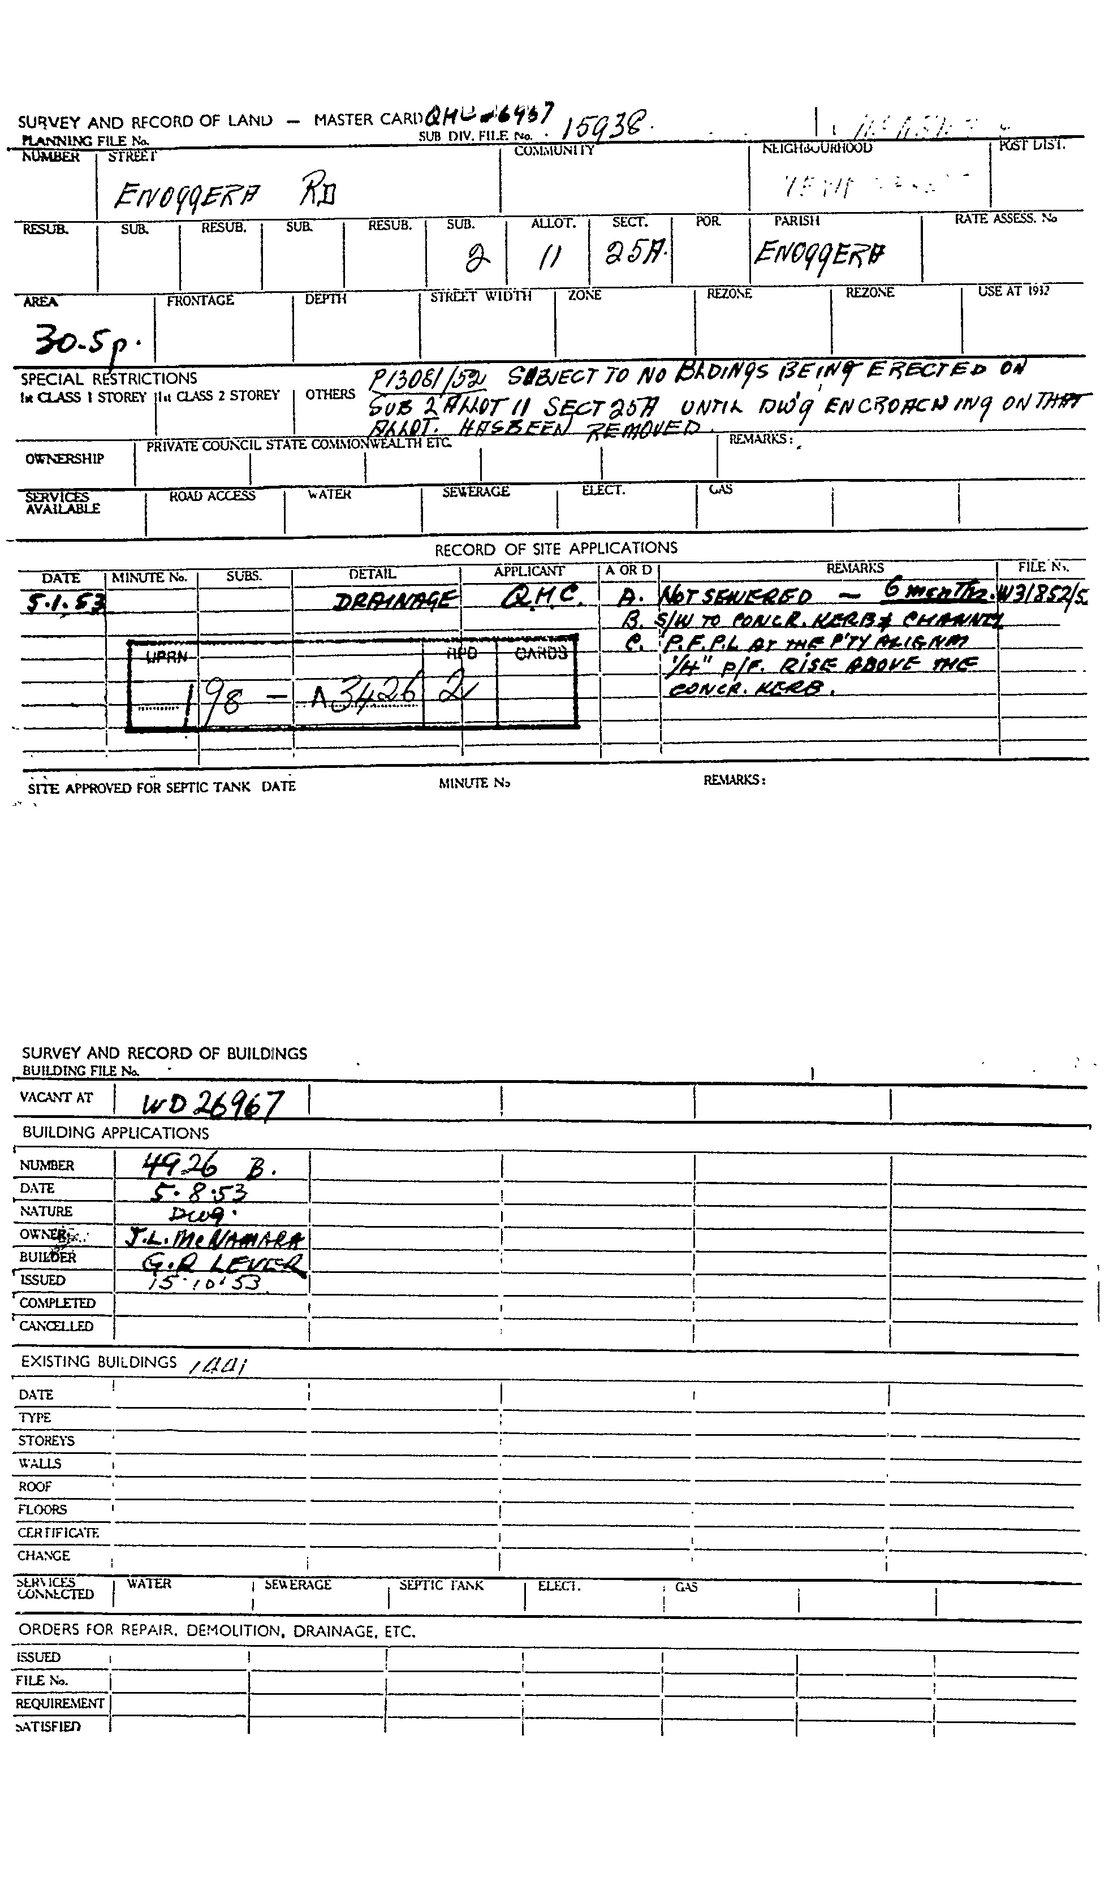 SURVEY AND RECORD OF LAND — MASTER CARD
PLANNING FILE No. SUB DIV. FILE No. 15938.
NUMBER STREET COMMUNITY NEIGHBOURHOOD POST DIST.
ENOGGERA RD
RESUB. SUB. RESUB. SUB. RESUB. SUB. ALLOT. SECT. POR. PARISH RATE ASSESS. No
2 11 25A. ENOGGERA
AREA FRONTAGE DEPTH STREET WIDTH ZONE REZONE REZONE USE AT 1942
30.5p.
SPECIAL RESTRICTIONS
1st CLASS 1 STOREY 1st CLASS 2 STOREY OTHERS
P13081/52 SUBJECT TO NO BLDINGS BEING ERECTED ON
SUB 2 ALLOT 11 SECT 25A UNTIL DW'G ENCROACHING ON THAT
ALLOT. HAS BEEN REMOVED.
OWNERSHIP PRIVATE COUNCIL STATE COMMONWEALTH ETC. REMARKS:
SERVICES AVAILABLE ROAD ACCESS WATER SEWERAGE ELECT. GAS
RECORD OF SITE APPLICATIONS
DATE MINUTE No. SUBS. DETAIL APPLICANT A OR D REMARKS FILE No.
5.1.53 DRAINAGE Q.H.C. A. NOT SEWERED — 6 months. W31852/5
B. S/W TO CONCR. KERB & CHANNEL
C. P.F.P.L AT THE P'TY ALIGNM
UPRN RPD CARDS
1/4" P/F. RISE ABOVE THE
CONCR. KERB.
198 - A3426 2
SITE APPROVED FOR SEPTIC TANK DATE MINUTE No REMARKS:
SURVEY AND RECORD OF BUILDINGS
BUILDING FILE No.
VACANT AT WD 26967
BUILDING APPLICATIONS
NUMBER 4926 B.
DATE 5.8.53
NATURE Dwg.
OWNER J.L. McNAMARA
BUILDER G.R LEVER
ISSUED 15.10.53
COMPLETED
CANCELLED
EXISTING BUILDINGS
DATE
TYPE
STOREYS
WALLS
ROOF
FLOORS
CERTIFICATE
CHANGE
SERVICES CONNECTED WATER SEWERAGE SEPTIC TANK ELECT. GAS
ORDERS FOR REPAIR, DEMOLITION, DRAINAGE, ETC.
ISSUED
FILE No.
REQUIREMENT
SATISFIED